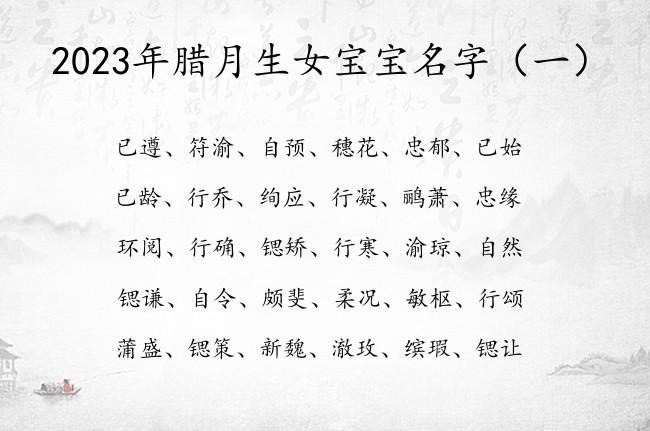 2023年腊月生女宝宝名字（一）
已遵、符渝、自预、穗花、忠郁、已始
已龄、行乔、绚应、行凝、鹂萧、忠缘
环阅、行确、锶矫、行寒、渝琼、自然
锶谦、自令、颇斐、柔况、敏枢、行颂
蒲盛、锶策、新魏、澈玫、缤瑕、锶让